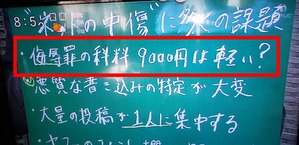 8:5
"ネットの中傷"に数々の課題
・侮辱罪の科料 9000円は軽い?
悪質な書き込みの特定が大変
・大量の投稿が1人に集中する